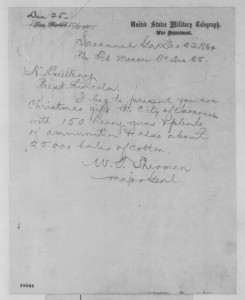 Dec 25-
United States Military Telegraph,
War Department.
Savannah Ga Dec 22 1864
Via Ft. Monroe Va Dec 25.
President Lincoln.
I beg to present you as a
Christmas gift the City of Savannah
with 150 heavy guns & plenty
of ammunition & also about
25000 bales of cotton.
W. T. Sherman
Major Genl